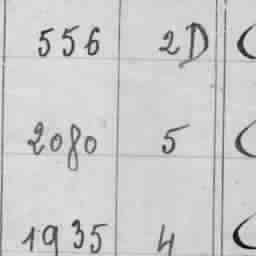 556 2D
2080 5
1935 4